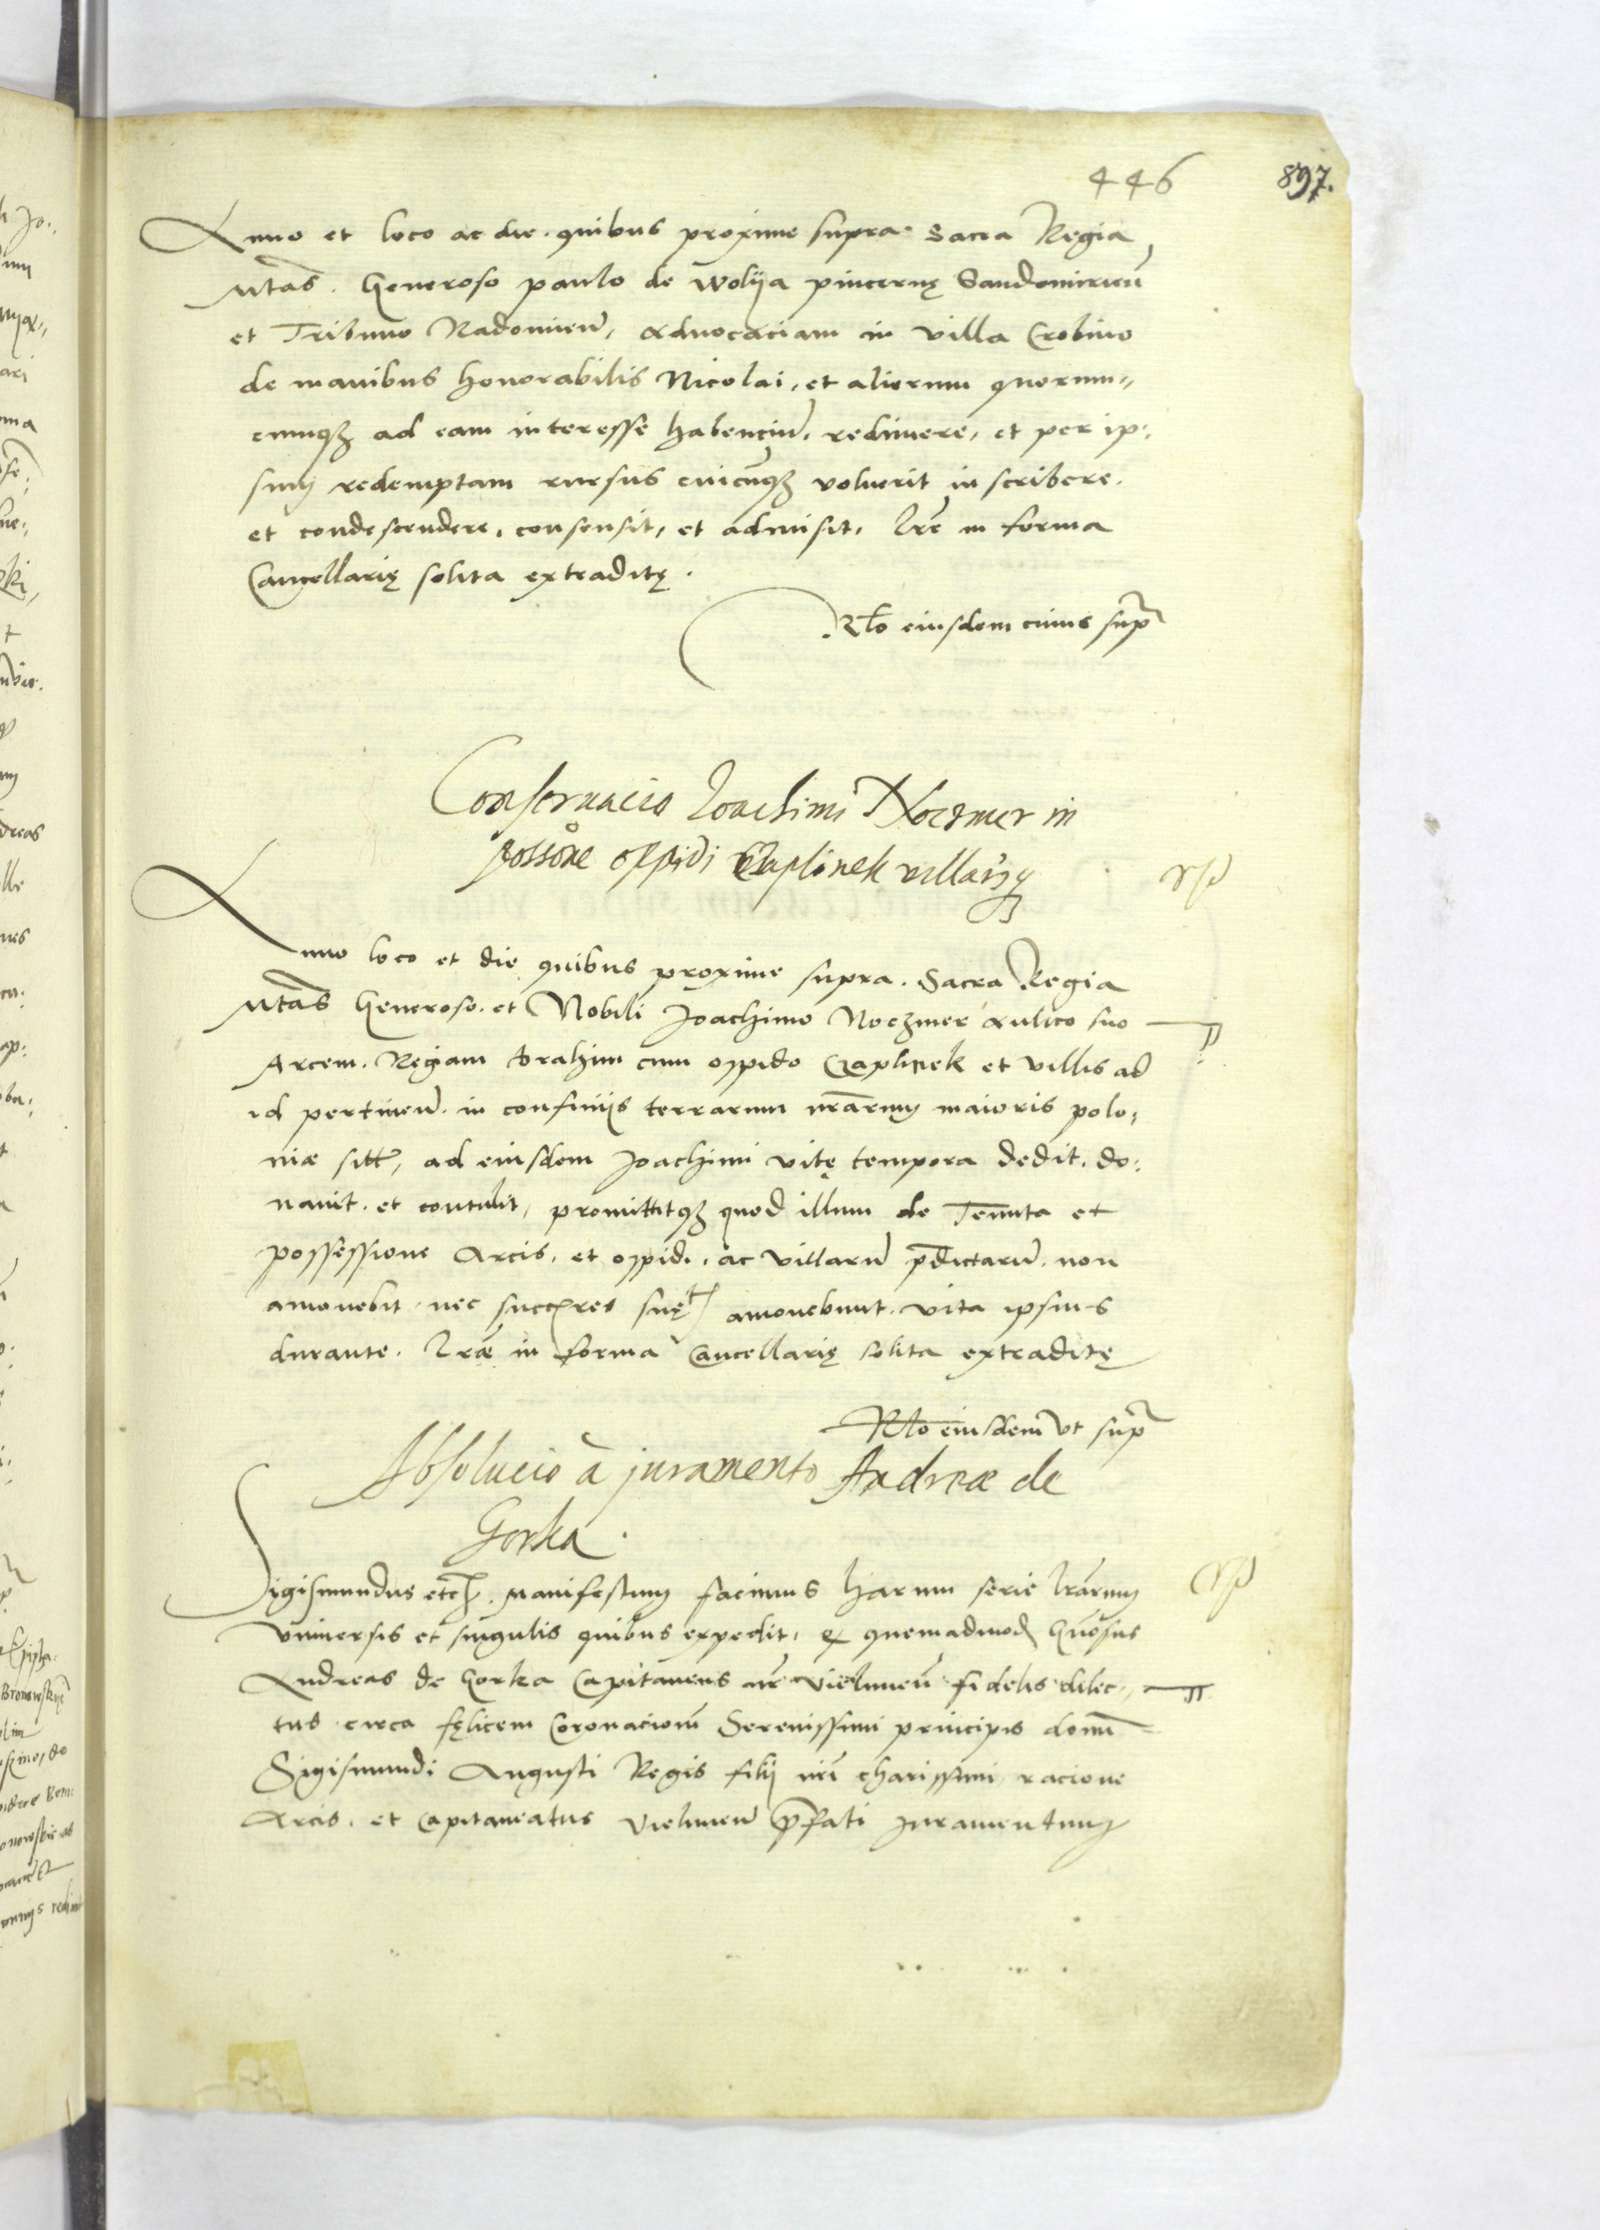 446 897.
Anno et loco ac die quibus proxime supra. Sacra Regia
Mtas. Generoso paulo de Wolya pincernę Sandomirien̄
et Tribuno Radomien̄, aduocaciam in villa Crobino
de manibus honorabilis Nicolai, et aliorum quorum„
cumqꝫ ad eam interesse habenciū, redimere, et per ip„
sum redemptam rursus cuicūqꝫ voluerit inscribere.
et condescendere, consensit, et admisit, lrē in forma
Cancellarię solita extraditę.
Rlo eiusdem cuius supra
Conseruacio Joachimi Noczmer in
possōne oppidi Czaplinek villarūqꝫ
Anno loco et die quibus proxime supra. Sacra Regia
Mtas Generoso. et Nobili Joachimo Noczmer aulico suo
Arcem. Regiam Drahim cum oppido Czaplinek et villis ad
id pertinen̄. in confinijs terrarum nrārum maioris polo„
niæ sitt, ad eiusdem Joachimi vitę tempora dedit. do„
nauit. et contulit, promittitqꝫ quod illum de Tenuta et
possessione Arcis. et oppidi. ac villarū pdictarū. non
amouebit. nec succres suę amouebunt. vita ipsius
durante. lræ in forma Cancellarię solita extraditę
Rlo eiusdem vt supra
Absolucio à juramento Andreæ de
Gorka.
Sigismundus etc. Manifestum facimus harum serie lrārum
vniuersis et singulis quibus expedit, quemadmod Gnōsus
Andreas de Gorka Capitaneus nr̄ Vielunen̄ fidelis dilec„
tus circa fęlicem Coronacionē Serenissimi principis domī
Sigismundi Augusti Regis filij nrī charissimi, racione
Arcis. et Capitaneatus Vielunen̄ pfati juramentum